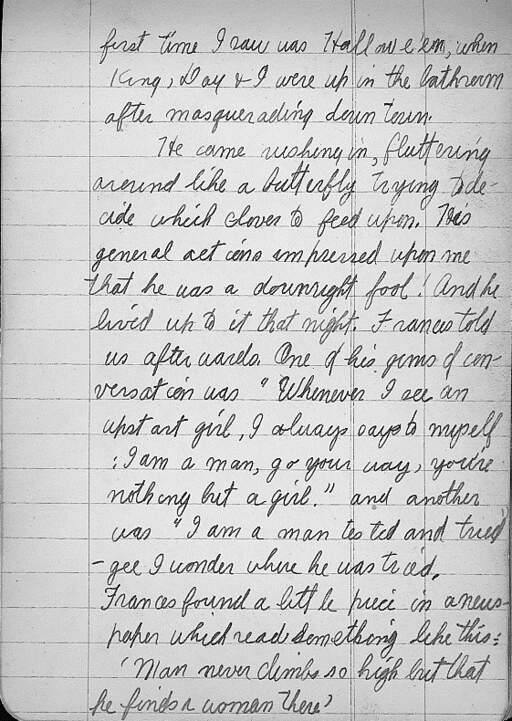 first time I saw was Hallowe'en, when
King, Day & I were up in the bathroom
after masquerading down town.
He came rushing in, fluttering
around like a butterfly trying to de-
cide which clover to feed upon. His
general actions impressed upon me
that he was a downright fool! And he
lived up to it that night. Frances told
us afterwards. One of his gems of con-
versation was "Whenever I see an
upstart girl, I always says to myself
: I am a man, go your way, you're
nothing but a girl." and another
was "I am a man tested and tried
- gee I wonder where he was tried.
Frances found a little piece in a news-
paper which read something like this:
'Man never climbs so high but that
he finds a woman there'